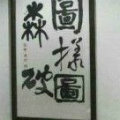 圖樣圖
森破